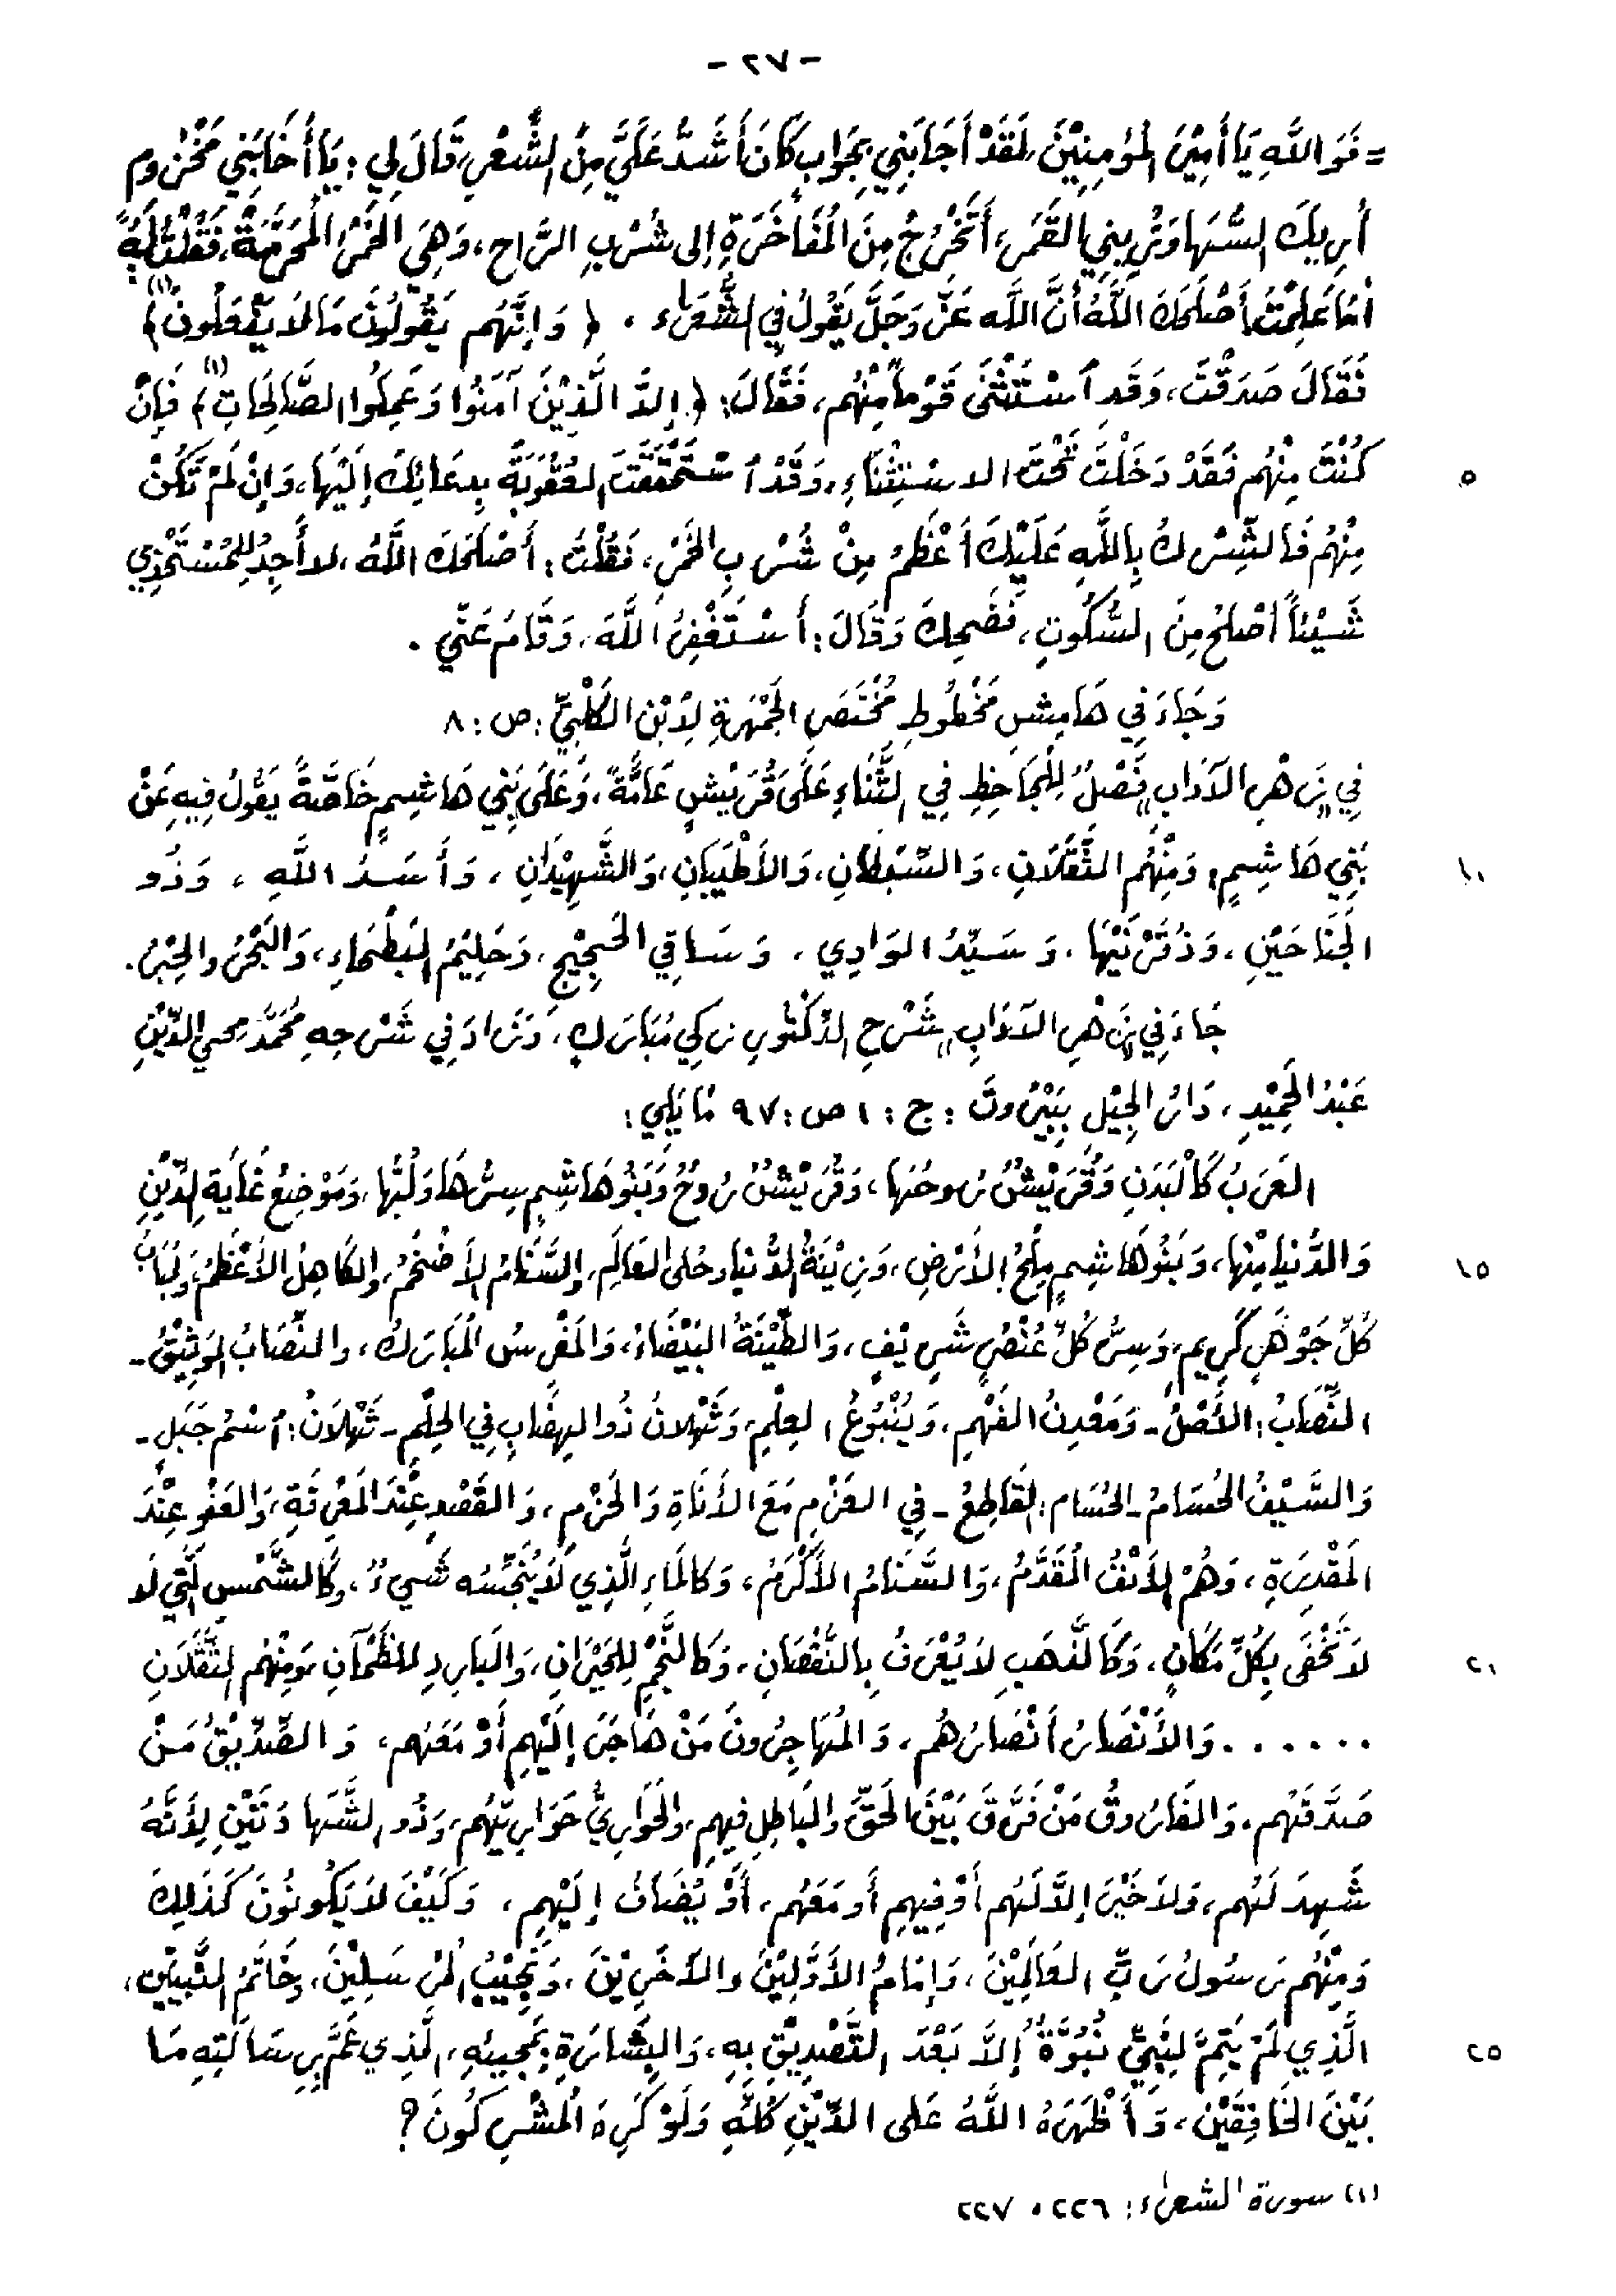 - ٢٧ -
= فَوَاللَّهِ يَا أَمِيْرَ المُؤمِنِيْنَ، لَقَدْ أَجَابَنِي بِجَوَابٍ كَانَ أَشَدَّ عَلَيَّ مِنَ الشِّعْرِ، قَالَ لِي: يَا أَخَا بَنِي مَخْزُومٍ
أُرِيكَ السُّهَا وَتُرِينِي القَمَرَ، أَتَخْرُجُ مِنَ الُمفَاخَرَةِ إلى شُرْبِ الرَّاحِ، وَهِيَ الخَمْرُ المُحَرَّمَةُ، فَقُلْتُ لَهُ:
أمَا عَلِمْتَ أَصْلَحَكَ اللَّهُ أَنَّ اللَّه عَزَّ وَجَلَّ يَقُولُ فِي الشُّعَرَاء . ﴿ وَإنَّهُم يَقُولُونَ مَالَا يَفْعَلُونَ﴾ (١)
فَقَالَ صَدَقْتَ، وَقَدِ ٱسْتَثْنَى قَوْماً مِنْهُم، فَقَالَ: ﴿ إلاَّ الَّذِيْنَ آمَنُوا وَعَمِلُوا الصَّالِحَاتِ﴾ (١) فَإنْ
كُنْتَ مِنْهُم فَقَدْ دَخَلْتَ تَحْتَ الاسْتِثْنَاءِ، وَقَدْ ٱسْتَحْقَقْتَ العُقُوبَةَ بِدعَائِكَ إلَيْهَا، وَإنْ لَمْ تَكُنْ ٥
مِنْهُم فَالشِّرْكُ بِاللَّهِ عَلَيْكَ أعْظَمُ مِنْ شُرْبِ الخَمْرِ، فَقُلْتُ: أَصْلَحَكَ اللَّهُ، لا أَجِدُ لِلمُسْتَخْذِي
شَيْئاً أصْلَحَ مِنَ السُّكُوتِ، فَضَحِكَ وَقَالَ: أَسْتَغْفِرُ اللَّهَ، وَقَامَ عَنِّي .
وَجَاءَ فِي هَامِشِ مَخْطُوطِ مُخْتَصَرِ الجَمْهَرَةِ لِابْنِ الكَلْبِيِّ: ص: ٨
فِي "زَهْرِ الآدَابِ" فَصْلٌ لِلْجَاحِظِ فِي الثَّنَاءِ عَلَى قُرَيْشٍ عَامَّةً، وَعَلَى بَنِي هَاشِمٍ خَاصَّةً يَقُولُ فِيهِ عَنْ
بَنِي هَاشِمٍ: وَمِنْهُم الثَّقَلَانِ، وَالسِّبْطَانِ، وَالأَطْيَبَانِ، وَالشَّهِيْدَانِ، وَأَسَدُ اللَّهِ، وَذُو ١٠
الجَنَاحَيْنِ، وَذُو قَرْنَيْهَا، وَسَيِّدُ الوَادِي، وَسَاقِي الحَجِيْجِ، وَحَلِيْمُ البَطْحَاءِ، وَالبَحْرُ والحِبْرُ.
جَاءَ فِي "زَهْرِ الآدَابِ" شَرْحِ الدُّكْتُورِ زكِي مُبَارَك، وَزَادَ فِي شَرْحِهِ مُحَمَّد مِحي الدِّيْنِ
عَبْدُ الحَمِيْدِ، دَارُ الجِيْلِ بِبَيْرُوتَ: ج: ١ ص: ٩٧ مَا يَلِي:
العَرَبُ كَالْبَدَنِ وَقُرَيْشٌ رُوحُهَا، وَقُرَيْشٌ رُوحٌ وَبَنُو هَاشِمٍ سِرُّهَا وَلُبُّهَا، وَمَوْضِعُ غَايَةِ الدِّيْنِ
وَالدُّنيا مِنْها، وَبَنُو هَاشِمٍ مِلْحُ الأَرْضِ، وَزِيْنَةُ الدُّنيا، وحُلى العَالَمِ، والسَّنَامُ الأَضْخَمُ، والكَاهِلُ الأَعْظَمُ، وَلُبَابُ ١٥
كُلِّ جَوْهَرٍ كَرِيمٍ، وَسِرُّ كُلِّ عُنْصُرٍ شَرِيْفٍ، وَالطِّيْنَةُ البَيْضَاءُ، وَالمَغْرِسُ الُمبَارَكُ، والنِّصَابُ الوَثِيْقُ -
النِّصَابُ: الأَصْلُ - وَمَعْدِنُ الفَهْمِ، وَيَنْبُوعُ العِلْمِ، وَثَهْلانُ ذُو الهِضَابِ فِي الحِلْمِ - ثَهْلَانُ: ٱسْمُ جَبَلٍ -
وَالسَّيْفُ الحُسَامُ - الحُسَام: القَاطِعُ - فِي العَزْمِ مَعَ الأَنَاةِ وَالحَزْمِ، وَالقَصْدِ عِنْدَ المَعْرِفَةِ، وَالعَفْوِ عِنْدَ
المَقْدِرَةِ، وَهُمُ الأَنْفُ المُقَدَّمُ، وَالسَّنَامُ الأَكْرَمُ، وَكَالمَاءِ الَّذِي لَا يُنَجِّسُه شَيءٌ، وكَالشَّمْسِ الَّتِي لا
لَا تَخْفَى بِكُلِّ مَكَانٍ، وَكَالذَّهَبِ لَا يُعْرَفُ بِالنُّقْصَانِ، وَكَالنَّجْمِ لِلحَيْرَانِ، وَالبَارِدِ لِلظَّمْآنِ، وَمِنْهُم الثَّقَلَانِ ٢٠
...... وَالأَنْصَارُ أَنْصَارُهُم، وَالمُهَاجِرُونَ مَنْ هَاجَرَ إلَيْهِم أَوْ مَعَهُم، وَالصِّدِّيْقُ مَنْ
صَدَّقَهُم، وَالفَارُوقُ مَنْ فَرَّقَ بَيْنَ الحَقِّ والبَاطِلِ فِيهِم، والحَوَارِيُّ حَوَارِيّهُم، وَذُو الشَّهَادَتَيْنِ لِأَنَّهُ
شَهِدَ لَهُم، وَلَا خَيْرَ إلاَّ لَهُم أَوْ فِيهِم أَو مَعَهُم، أَوْ يُضَافُ إلَيْهِم، وَكَيْفَ لَا يَكُونُونَ كَذَلِكَ
وَمِنْهُم رَسُولُ رَبِّ العَالَمِيْنَ، وَإمَامُ الأَوَّلِيْنَ والآخَرِيْنَ، وَنَجِيْبُ الُمرْسَلِيْنَ، وخَاتَمُ النَّبِيِّيْن،
الَّذِي لَمْ يَتِمَّ لِنَبِيٍّ نُبُوَّةٌ إلاَّ بَعْدَ التَّصْدِيْقِ بِهِ، وَالبِشَارَةِ بِمَجِيئِهِ، الَّذِي عَمَّ بِرِسَالَتِهِ مَا ٢٥
بَيْنَ الخَافِقَيْنِ، وَأَظْهَرَهُ اللَّهُ عَلى الدِّيْنِ كُلِّهِ وَلَوْ كَرِهَ الُمشْرِكُونَ؟
(١) سورة الشعراء: ٢٢٦ ، ٢٢٧